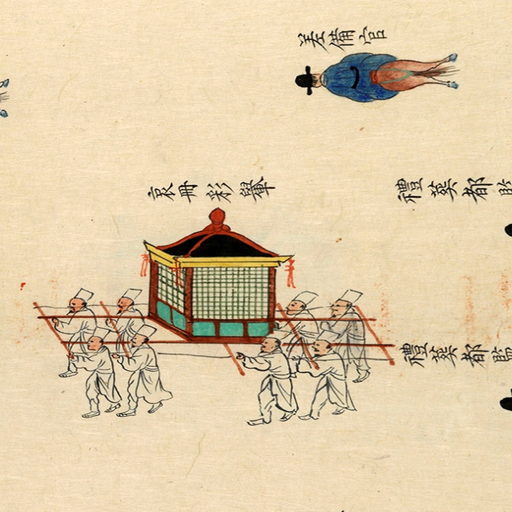 差備官
哀冊彩轝
禮葬都監
禮葬都監